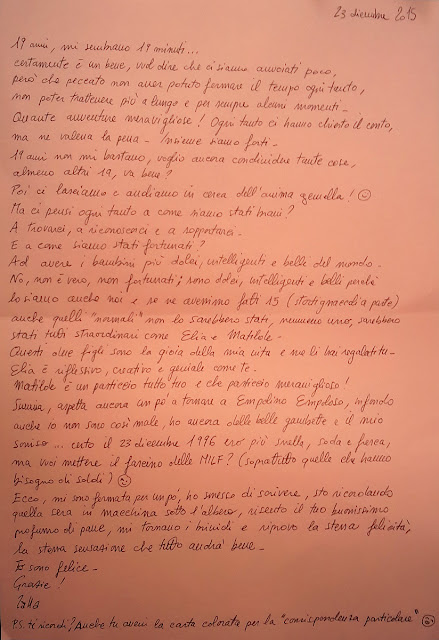 23 dicembre 2015
19 anni, mi sembrano 19 minuti...
certamente è un bene, vuol dire che ci siamo annoiati poco,
però che peccato non aver potuto fermare il tempo ogni tanto,
non poter trattenere più a lungo e per sempre alcuni momenti.
Quante avventure meravigliose! Ogni tanto ci hanno chiesto il conto,
ma ne valeva la pena. Insieme siamo forti.
19 anni non mi bastano, voglio ancora condividere tante cose,
almeno altri 19, va bene?
Poi ci lasciamo e andiamo in cerca dell'anima gemella!
Ma ci pensi ogni tanto a come siamo stati bravi?
A trovarci, a riconoscerci e a sopportarci.
E a come siamo stati fortunati?
Ad avere i bambini più dolci, intelligenti e belli del mondo.
No, non è vero, non fortunati; sono dolci, intelligenti e belli perché
lo siamo anche noi e se ne avessimo fatti 15 (a parte)
anche quelli "normali" non lo sarebbero stati, nemmeno uno, sarebbero
stati tutti straordinari come Elia e Matilde.
Questi due figli sono la gioia della mia vita e me li hai regalati tu.
Elia è riflessivo, creativo e geniale come te.
Matilde è un pasticcio tutto tuo e che pasticcio meraviglioso!
aspetta ancora un pò a tornare a Empolino Emploso, infondo
anche io non sono così male, ho ancora delle belle gambette e il mio
sorriso... certo il 23 dicembre 1996 ero più snella, soda e fresca,
ma vuoi mettere il fascino delle MILF? (soprattutto quelle che hanno
bisogno di soldi)
Ecco, mi sono fermata per un pò, ho smesso di scrivere, sto ricordando
quella sera in macchina sotto l'albero, risento il tuo buonissimo
profumo di pane, mi tornano i brividi e riprovo la stessa felicità,
la stessa sensazione che tutto andrà bene.
Io sono felice.
Grazie!
P.S. ti ricordi? Anche tu avevi la carta colorata per la "corrispondenza particolare"